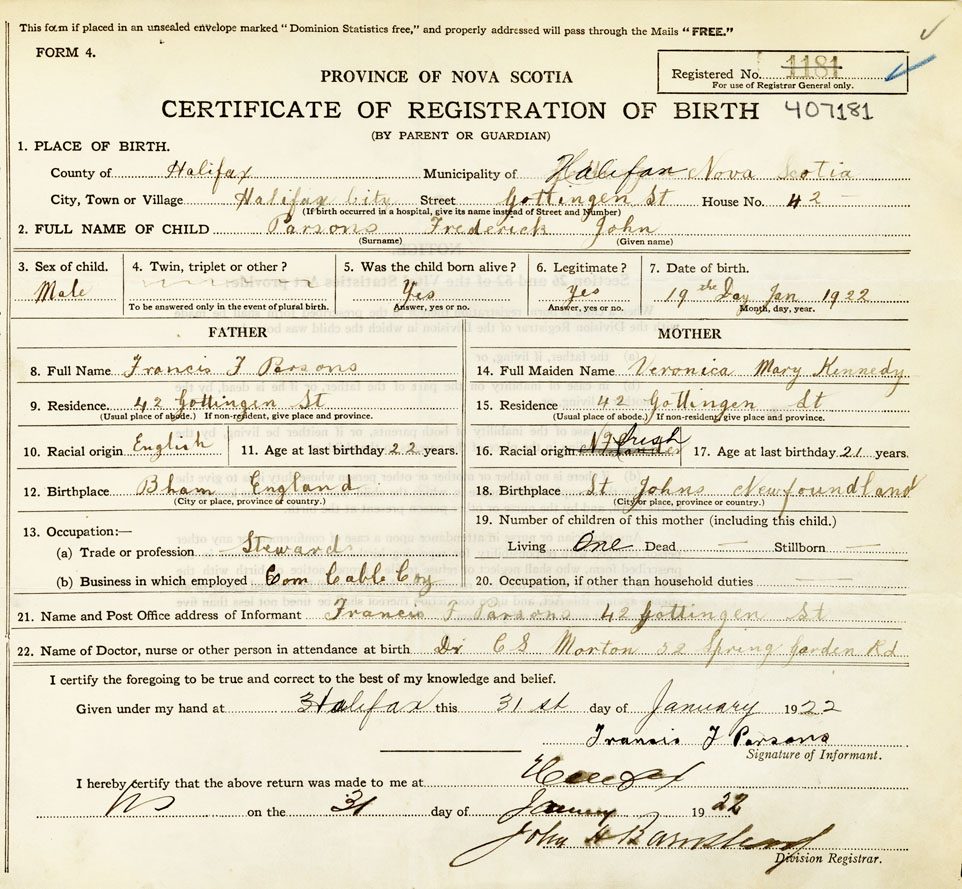 This form if placed in an unsealed envelope marked "Dominion Statistics free," and properly addressed will pass through the Mails "FREE."
FORM 4.
PROVINCE OF NOVA SCOTIA
Registered No. 1181
For use of Registrar General only.
CERTIFICATE OF REGISTRATION OF BIRTH 407181
(BY PARENT OR GUARDIAN)
1. PLACE OF BIRTH.
County of Halifax Municipality of Halifax Nova Scotia
City, Town or Village Halifax City Street Gottingen St House No. 42
(If birth occurred in a hospital, give its name instead of Street and Number)
2. FULL NAME OF CHILD Parsons Frederick John
(Surname) (Given name)
3. Sex of child. 4. Twin, triplet or other? 5. Was the child born alive? 6. Legitimate? 7. Date of birth.
Male Yes Yes 19th Day Jan 1922
To be answered only in the event of plural birth. Answer, yes or no. Answer, yes or no. Month, day, year.
FATHER MOTHER
8. Full Name Francis F Parsons 14. Full Maiden Name Veronica Mary Kennedy
9. Residence 42 Gottingen St 15. Residence 42 Gottingen St
(Usual place of abode.) If non-resident, give place and province. (Usual place of abode.) If non-resident, give place and province.
10. Racial origin English 11. Age at last birthday 22 years. 16. Racial origin Irish 17. Age at last birthday 21 years.
12. Birthplace Bham England 18. Birthplace St Johns Newfoundland
(City or place, province or country.) (City or place, province or country.)
13. Occupation:— 19. Number of children of this mother (including this child.)
(a) Trade or profession Steward Living One Dead — Stillborn —
(b) Business in which employed Com Cable Coy 20. Occupation, if other than household duties
21. Name and Post Office address of Informant Francis F Parsons 42 Gottingen St
22. Name of Doctor, nurse or other person in attendance at birth Dr C S Morton 32 Spring Garden Rd
I certify the foregoing to be true and correct to the best of my knowledge and belief.
Given under my hand at Halifax this 31st day of January 1922
Francis F Parsons
Signature of Informant.
I hereby certify that the above return was made to me at Halifax
NS on the 31 day of January 1922
John H Barnstead
Division Registrar.